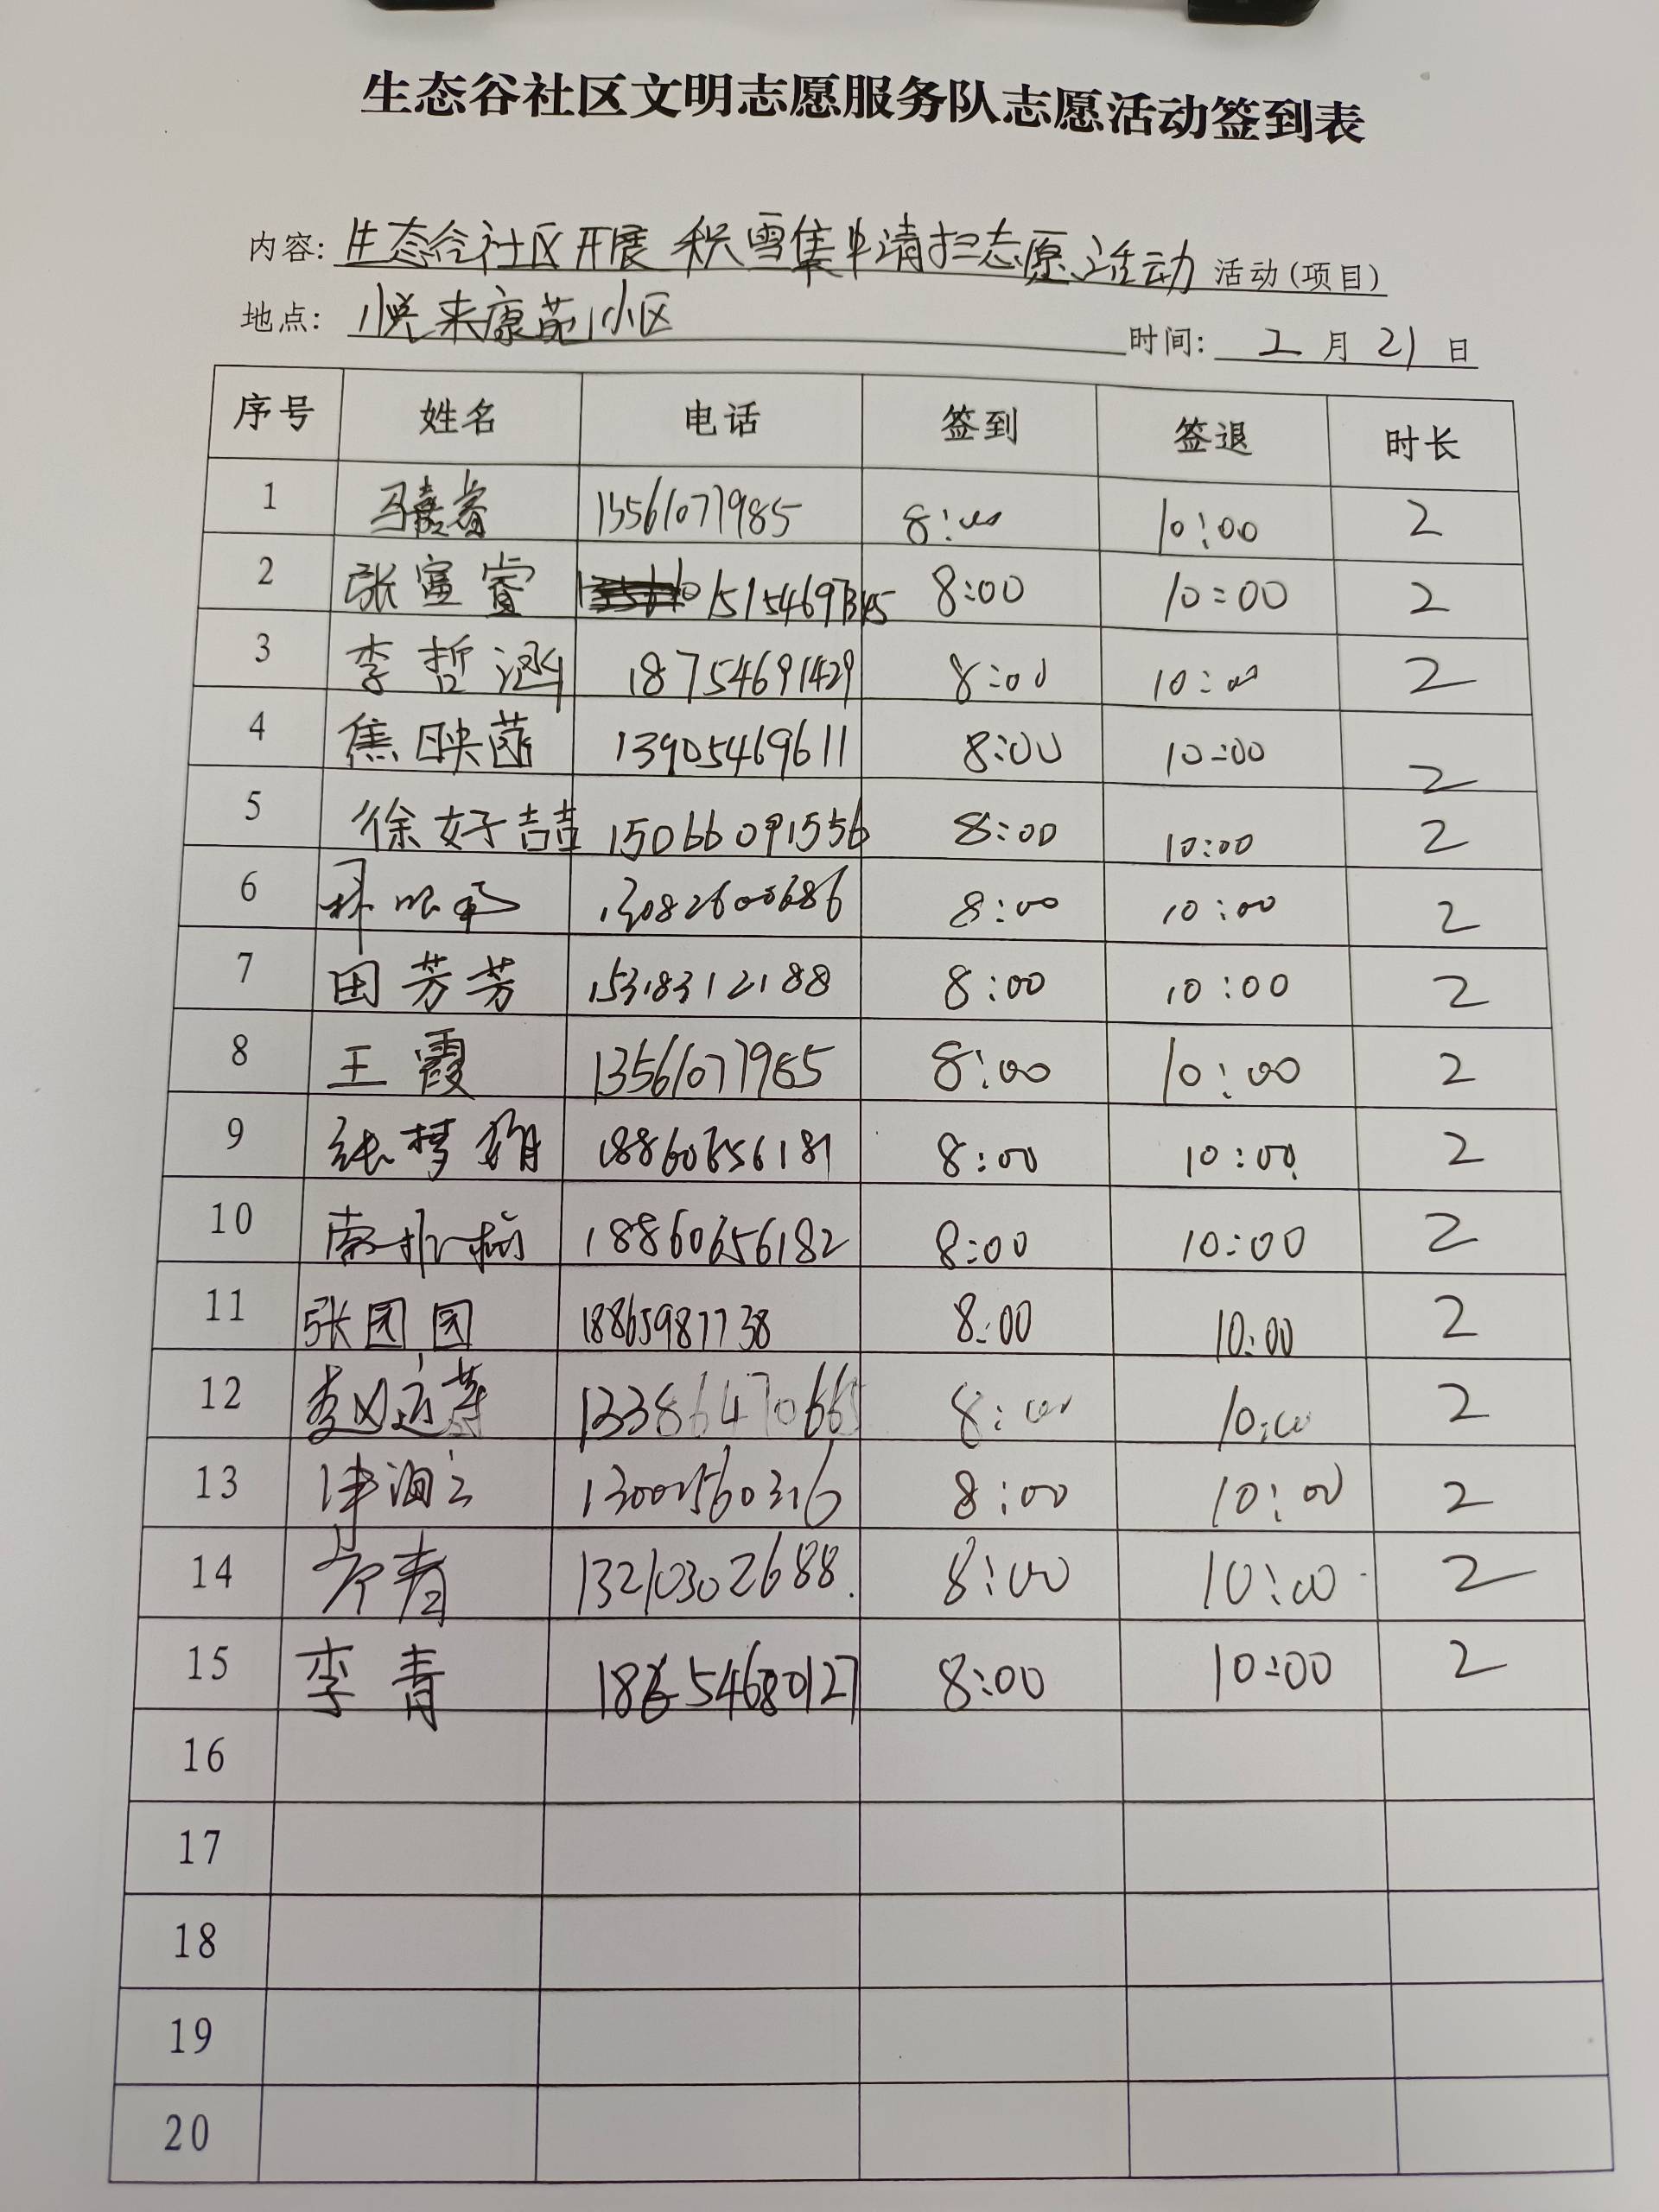 生态谷社区文明志愿服务队志愿活动签到表
内容: 生态谷社区开展积雪集中清扫志愿活动 活动(项目)
地点: 悦来康苑小区 时间: 2 月 21 日
序号 姓名 电话 签到 签退 时长
1 13561077985 8:00 10:00 2
2 张 8:00 10:00 2
3 李哲涵 18754691429 8:00 10:00 2
4 焦映菡 13905469611 8:00 10:00 2
5 徐好喆 15066091556 8:00 10:00 2
6 13082600686 8:00 10:00 2
7 田芳芳 15318312188 8:00 10:00 2
8 王霞 13561077985 8:00 10:00 2
9 张梦娟 18860656181 8:00 10:00 2
10 18860656182 8:00 10:00 2
11 张团团 18865987738 8:00 10:00 2
12 13386470665 8:00 10:00 2
13 8:00 10:00 2
14 13210302688. 8:00 10:00 2
15 李青 18654680127 8:00 10:00 2
16
17
18
19
20